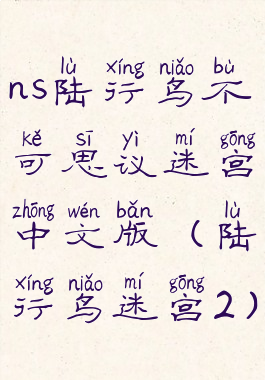 lù xíng niǎo bù
ns陆行鸟不
kě sī yì mí gōng
可思议迷宫
zhōng wén bǎn lù
中文版（陆
xíng niǎo mí gōng
行鸟迷宫2）